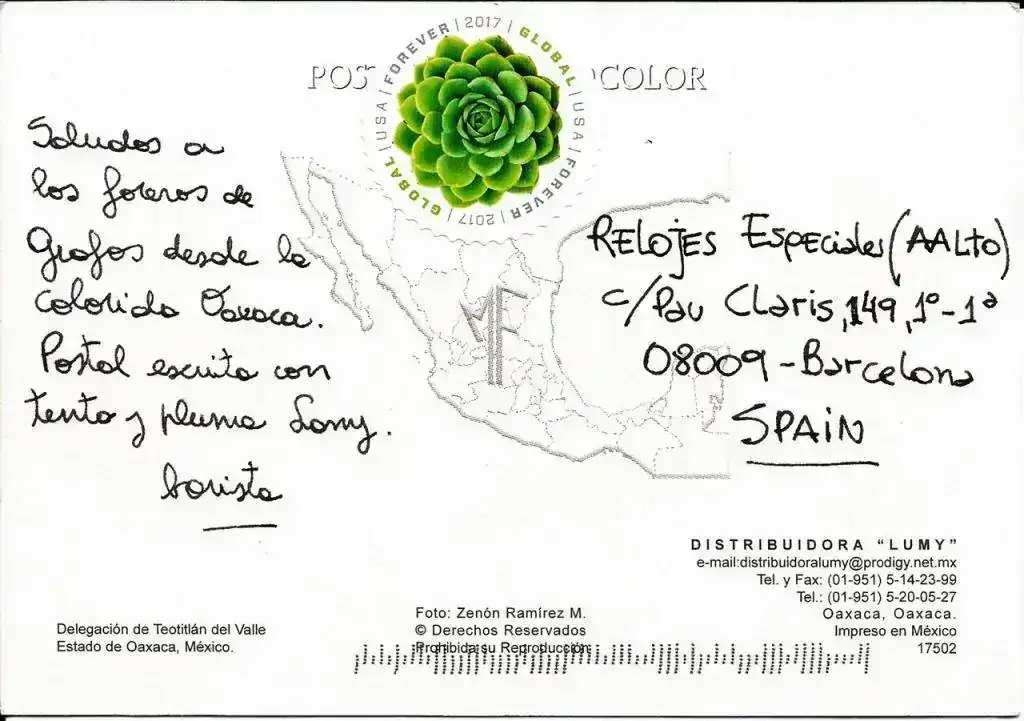 POS COLOR
GLOBAL | USA | FOREVER | 2017 | GLOBAL | USA | FOREVER | 2017 |
Saludos a
los foreros de
Grafos desde la
colorida Oaxaca.
Postal escrita con
tinta y pluma Lamy.
barista
RELOJES Especiales (AALTO)
c/Pau Claris, 149, 1º-1ª
08009 - Barcelona
SPAIN
ME
DISTRIBUIDORA “LUMY”
e-mail:distribuidoralumy@prodigy.net.mx
Tel. y Fax: (01-951) 5-14-23-99
Tel.: (01-951) 5-20-05-27
Oaxaca, Oaxaca.
Impreso en México
17502
Foto: Zenón Ramírez M.
© Derechos Reservados
Prohibida su Reproducción
Delegación de Teotitlán del Valle
Estado de Oaxaca, México.